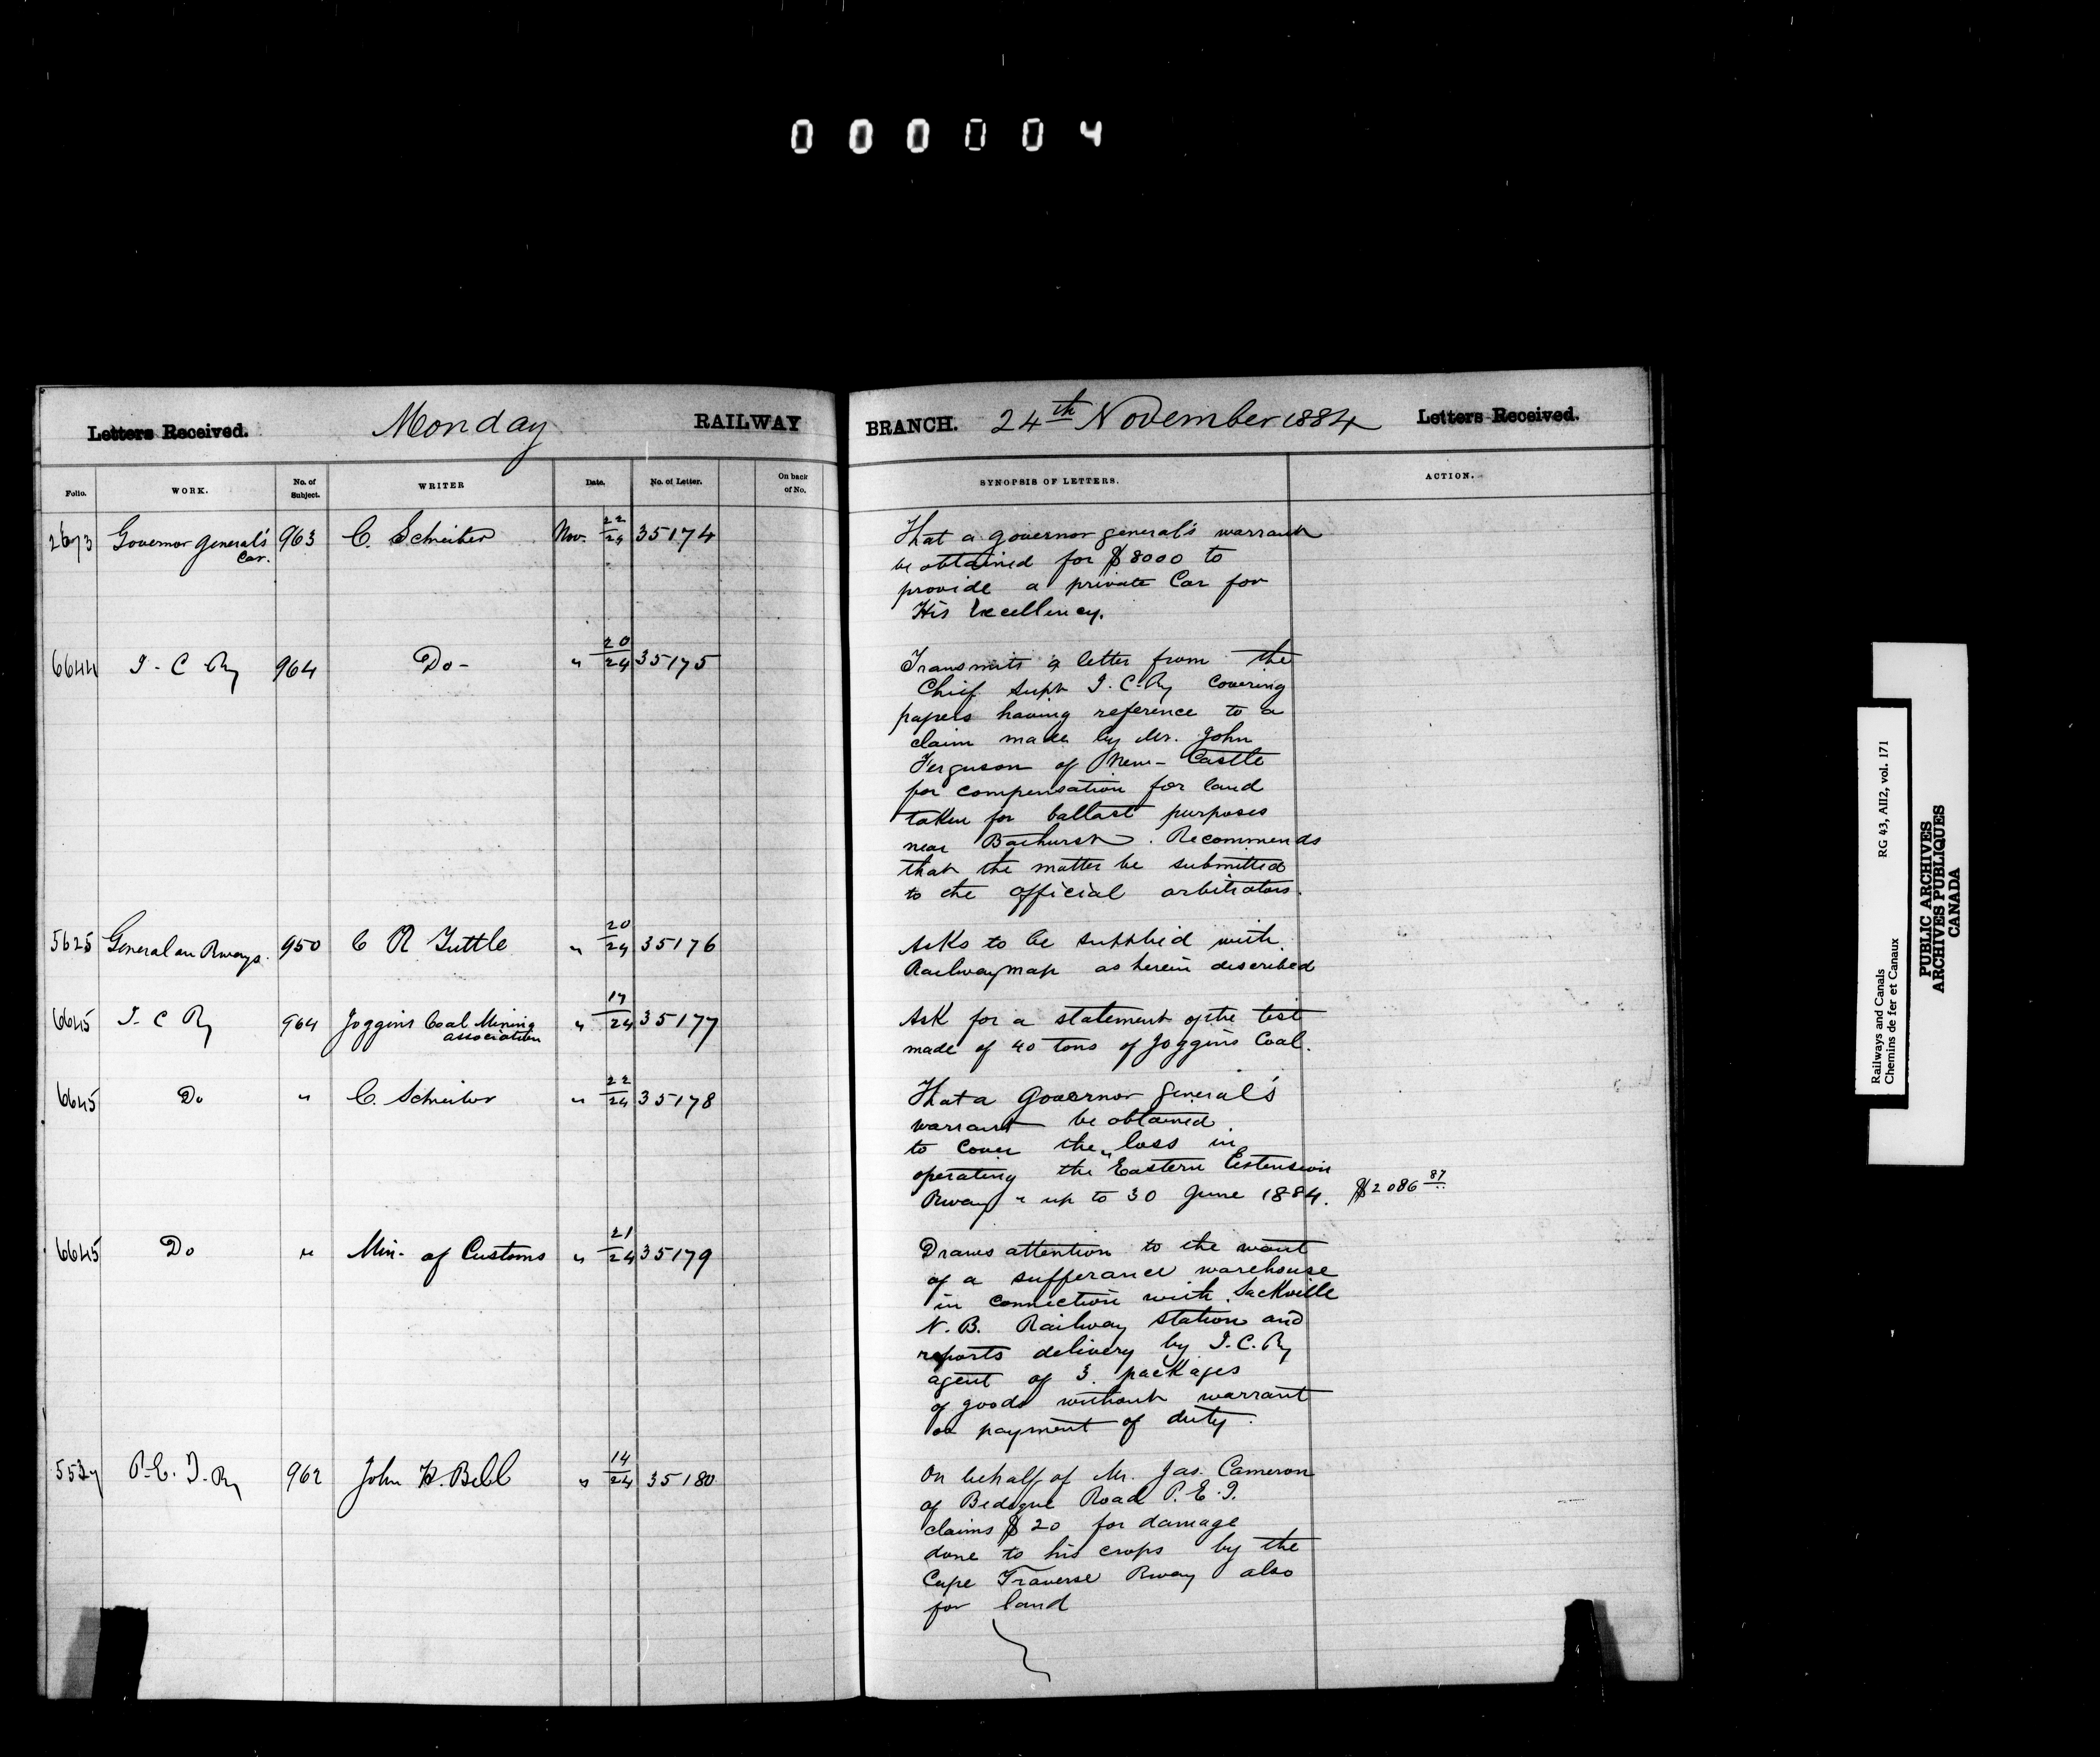 000004
Letters Received. Monday RAILWAY
Folio. WORK. No. of Subject. WRITER Date. No. of Letter. On back of No.
2673 Governor General's Car. 963 C. Schreiber Nov. 22/24 35174
6644 I. C Ry 964 Do- " 20/24 35175
5625 General on Rways. 950 C R Tuttle " 20/24 35176
6645 I. C Ry 964 Joggins Coal Mining association " 17/24 35177
6645 Do " C. Schreiber " 22/24 35178
6645 Do " Min. of Customs " 21/24 35179
5527 P.E.I. Ry 962 John H. Bell " 14/24 35180
BRANCH. 24th November 1884 Letters Received.
SYNOPSIS OF LETTERS. ACTION.
That a governor general's warrant
be obtained for $8000 to
provide a private Car for
His Excellency.
Transmits a letter from the
Chief Supt I.C.Ry Covering
papers having reference to a
claim made by Mr. John
Ferguson of New-Castle
for compensation for land
taken for ballast purposes
near Bathurst. Recommends
that the matter be submitted
to the official arbitrators.
Asks to be supplied with
Railway map as herein described
Ask for a statement of the test
made of 40 tons of Joggins Coal.
That a Governor General's
warrant be obtained
to cover the "loss in
operating the Eastern Extension
Rway" up to 30 June 1884. $2086 87
Draws attention to the want
of a sufferance warehouse
in connection with Sackville
N.B. Railway Station and
reports delivery by I.C.Ry
agent of 3 packages
of goods without warrant
or payment of duty.
On behalf of Mr. Jas. Cameron
of Bedeque Road P.E.I.
claims $20 for damage
done to his crops by the
Cape Traverse Rway also
for land
Railways and Canals RG 43, AII2, vol. 171
Chemins de fer et Canaux
PUBLIC ARCHIVES
ARCHIVES PUBLIQUES
CANADA